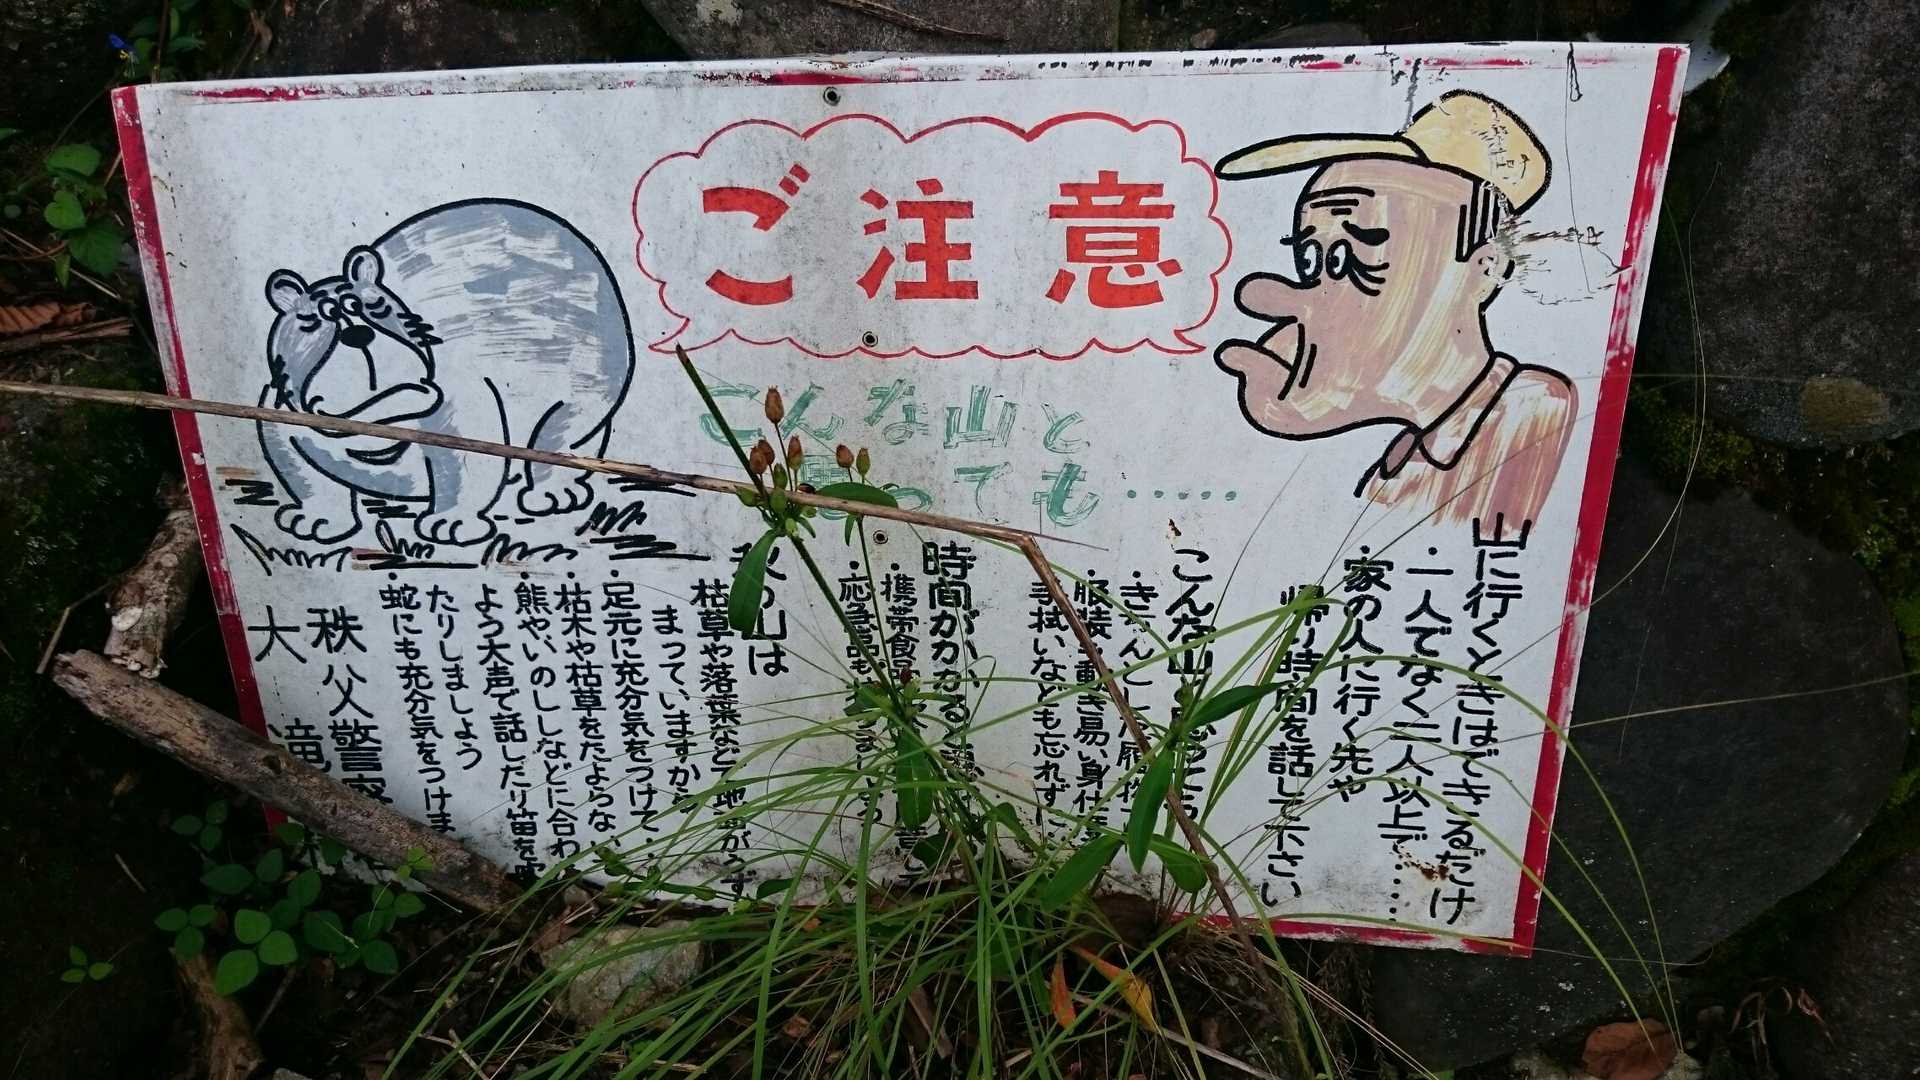 ご注意
こんな山と
思っても……
山に行くときはできるだけ
・一人でなく二人以上で……
・家の人に行く先や
帰り時間を話して下さい
こんな山
・きちんとした
服装・動き易い身仕
手拭いなども忘れずに
時間がかかる
・携帯食品
・応急
秋の山は
枯草や落葉などで地面がうず
まっていますから
・足元に充分気をつけて
・枯木や枯草をたよらない
・熊やいのししなどに合わ
よう大声で話したり笛を
たりしましよう
・蛇にも充分気をつけま
秩父警察
大滝